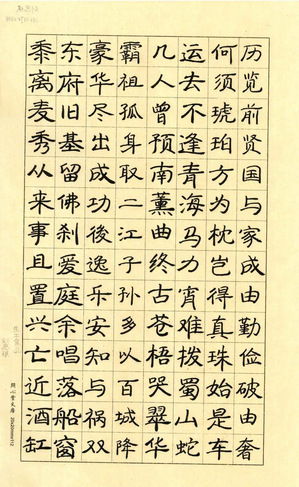 历览前贤国与家成由勤俭破由奢
何须琥珀方为枕岂得真珠始是车
运去不逢青海马力宵难拨蜀山蛇
几人曾预南薰曲终古苍梧哭翠华
霸祖孤身取二江子孙多以百城降
豪华尽出成功後逸乐安知与祸双
东府旧基留佛刹爱庭余唱落船窗
黍离麦秀从来事且置兴亡近酒缸